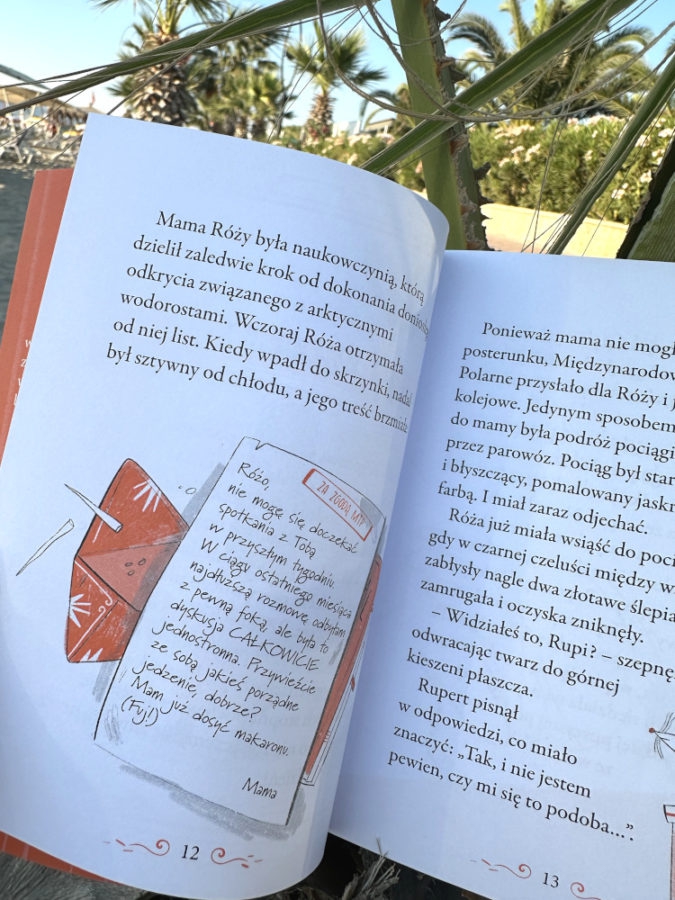 Mama Róży była naukowczynią, którą
dzielił zaledwie krok od dokonania
odkrycia związanego z arktycznymi
wodorostami. Wczoraj Róża otrzymała
od niej list. Kiedy wpadł do skrzynki, nadal
był sztywny od chłodu, a jego treść
ZA ZGODĄ
Różo,
nie mogę się doczekać
spotkania z Tobą
w przyszłym tygodniu.
W ciągu ostatniego miesiąca
najdłuższą rozmowę odbyłam
z pewną foką, ale była to
dyskusja CAŁKOWICIE
jednostronna. Przywieźcie
ze sobą jakieś porządne
jedzenie, dobrze?
Mam już dosyć makaronu.
(Fuj!)
Mama
12
Ponieważ mama nie
posterunku,
Polarne przysłało dla Róży i
kolejowe. Jedynym sposobem
do mamy była podróż
przez parowóz. Pociąg był
i błyszczący, pomalowany
farbą. I miał zaraz odjechać.
Róża już miała wsiąść do
gdy w czarnej czeluści między
zabłysły nagle dwa złotawe ślepia
zamrugała i oczyska zniknęły.
– Widziałeś to, Rupi? –
odwracając twarz do górnej
kieszeni płaszcza.
Rupert pisnął
w odpowiedzi, co miało
znaczyć: „Tak, i nie jestem
pewien, czy mi się to podoba…”.
13